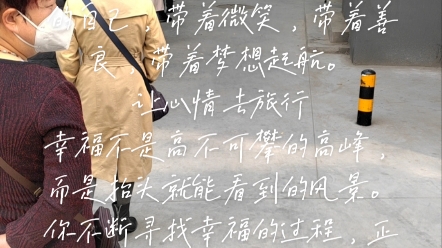 的自己，带着微笑，带着善
良，带着梦想起航。
让心情去旅行
幸福不是高不可攀的高峰，
而是抬头就能看到的风景。
你不断寻找幸福的过程，正